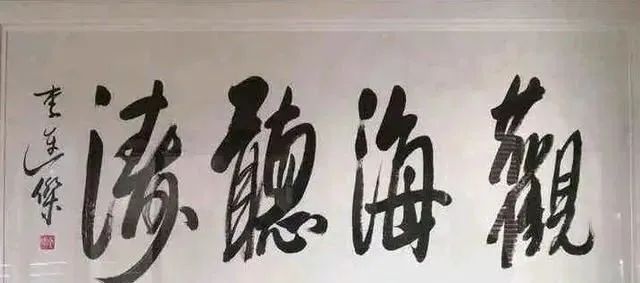 觀海聽濤
李連傑